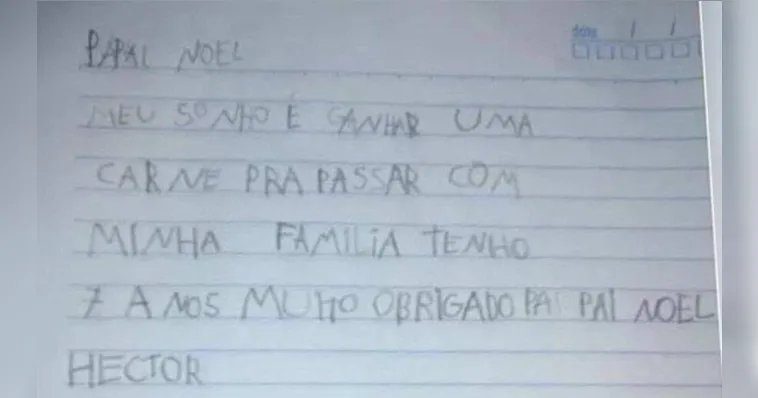 data / /
PAPAI NOEL
MEU SONHO É GANHAR UMA
CARNE PRA PASSAR COM
MINHA FAMILIA TENHO
7 ANOS MUITO OBRIGADO PA PAI NOEL
HECTOR